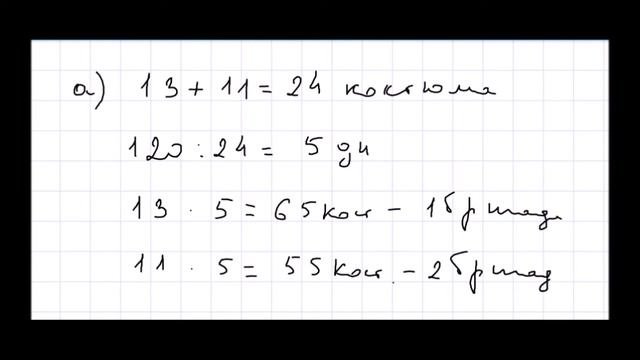 а) 13 + 11 = 24 костюма
120 : 24 = 5 дн
13 · 5 = 65 кос - 1 бригада
11 · 5 = 55 кос. - 2 бригад